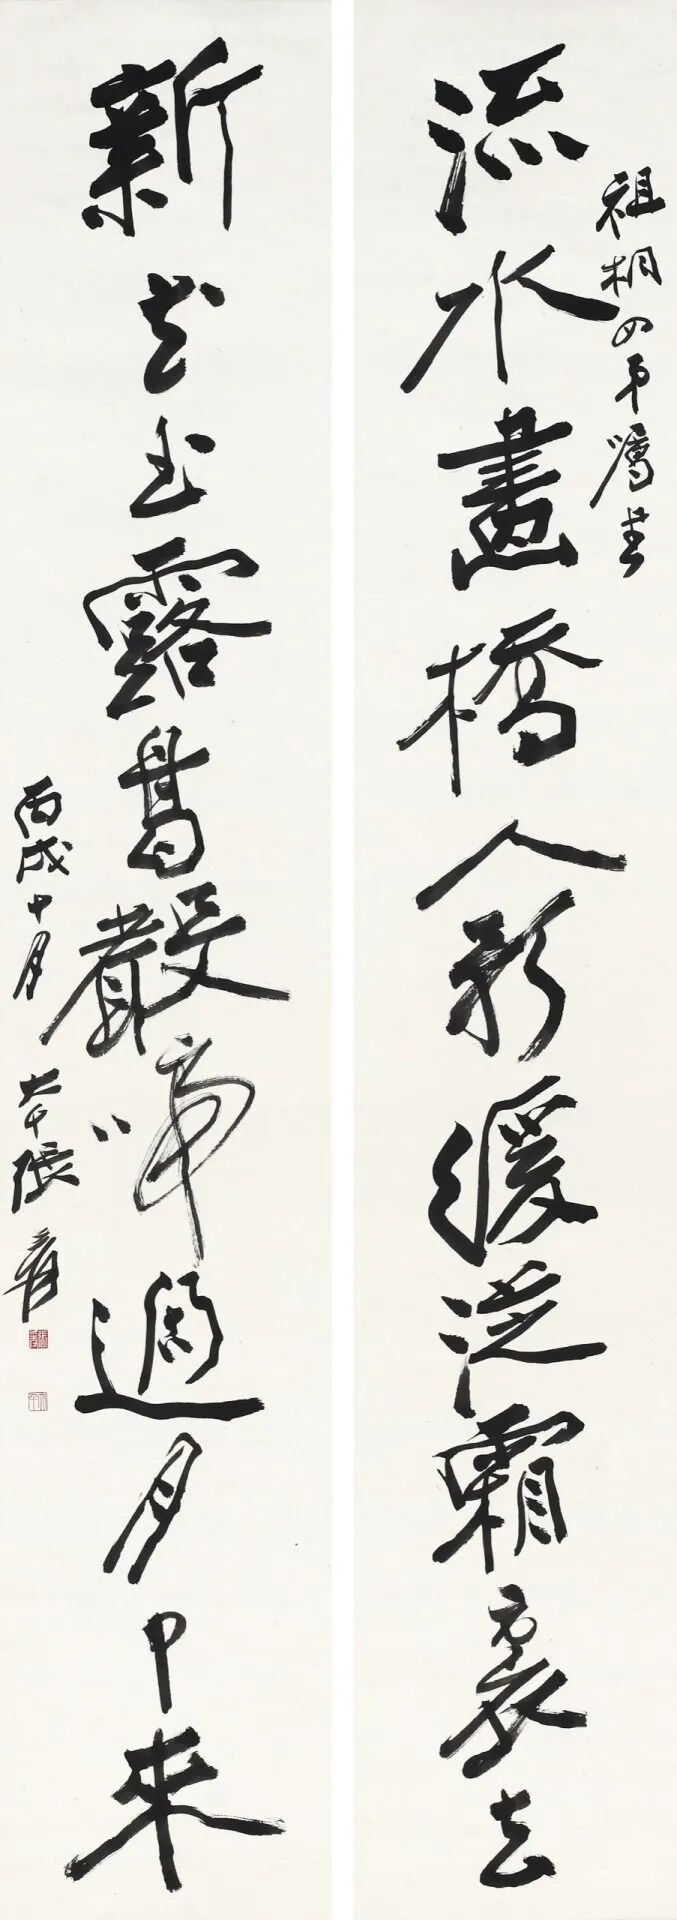 祖桐四弟囑書
流水畫橋人影緩從霜裏去
新花玉露聲啼過月中來
丙戌十月 大千張爰